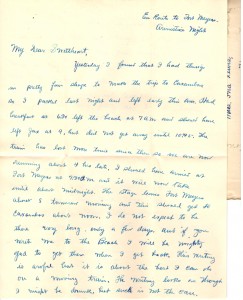 En Route to Fort Myers
Wednesday Night
My Dear Sweetheart,
Yesterday I found that I had things
in pretty fair shape to make the trip to Caxambas
so I packed last night and left early this A.M. Had
breakfast as we left the beach at 9 A.M. and should have
left Jax at 9, but did not get away until 10:45. The
train has lost more time since then so we are now
running about 4 hrs late, I should have arrived at
Fort Myers at 9:00 P.M. and it will now be
until about midnight. The stage leaves Fort Myers
about 8 tomorrow morning and I should get to
Caxambas about noon. I do not expect to be
there very long, only a few days. And if you
write me to the Beach I will be mighty
glad to get them when I get back. This writing
is awful but it is about the best I can do
on a moving train. The writing looks as though
I might be drunk, but such is not the case.